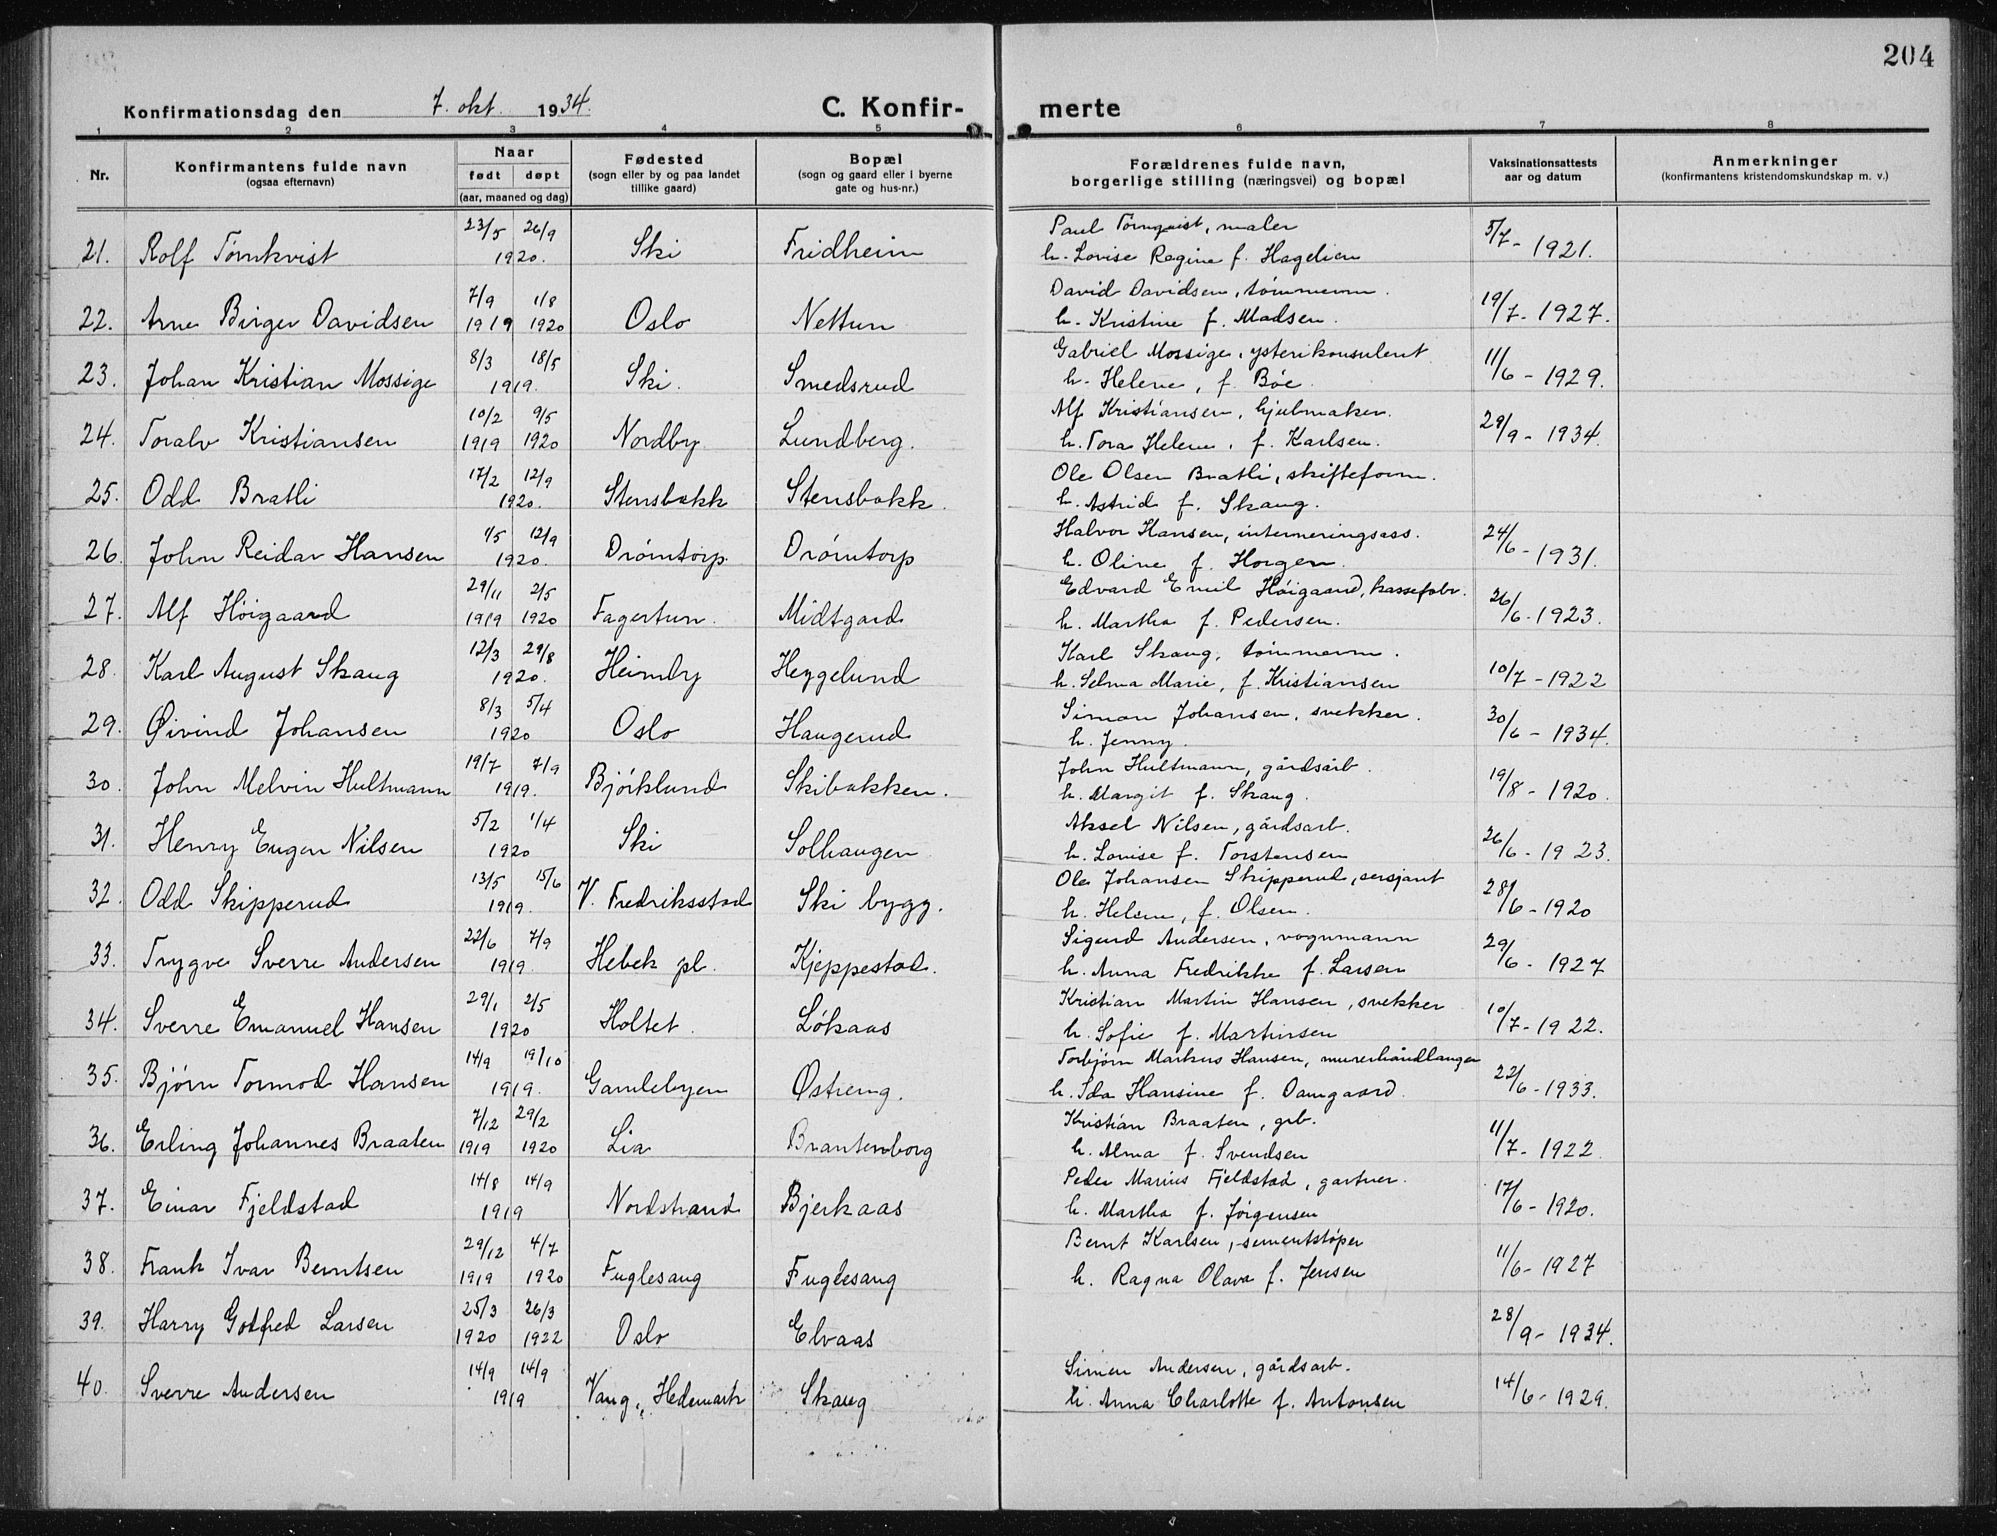 204
Konfirmationsdag den 7. okt. 1934. C. Konfir- merte
1 2 3 4 5 6 7 8
Nr. Konfirmantens fulde navn (ogsaa efternavn) Naar født døpt (aar, maaned og dag) Fødested (sogn eller by og paa landet tillike gaard) Bopæl (sogn og gaard eller i byerne gate og hus-nr.) Forældrenes fulde navn, borgerlige stilling (næringsvei) og bopæl Vaksinationsattests aar og datum Anmerkninger (konfirmantens kristendomskundskap m. v.)
23/5 26/9 Paul Tørnquist, maler 5/7 - 1921.
21. Rolf Tørnkvist 1920. Ski Fridheim h. Lovise Regine f. Hagelien
7/9 1/8 David Davidsen, tømmerm.
22. Arne Birger Davidsen 1919 1920 Oslo Nettun h. Kristine f. Madsen. 19/7 - 1927.
8/3 18/5 Gabriel Mossige, ysterikonsulent
23. Johan Kristian Mossige 1919. Ski. Smedsrud h. Helene, f. Bøe 11/6 - 1929.
10/2 9/5 Alf Kristiansen, hjulmaker.
24. Toralv Kristiansen 1919 1920 Nordby Lundberg. h. Tora Helene, f. Karlsen. 29/9 - 1934.
17/2 12/9 Ole Olsen Bratli, skifteform.
25. Odd Bratli 1920. Stensbakk Stensbakk. h. Astrid f. Skaug.
1/5 12/9 Halvor Hansen, interneringsass.
26. John Reidar Hansen 1920. Drømtorp Drømtorp h. Oline f. Horgen. 24/6 - 1931.
29/11 2/5 Edvard Emil Høigaard, kassefabr.
27. Alf Høigaard 1919 1920 Fagertun. Midtgard h. Martha f. Pedersen. 26/6 - 1923.
12/3 29/8 Karl Skaug, tømmerm.
28. Karl August Skaug 1920. Heimby Heggelund h. Selma Marie, f. Kristiansen 10/7 - 1922
8/3 5/4 Simon Johansen, svekker.
29. Øivind Johansen 1920 Oslo Haugerud h. Jenny. 30/6 - 1934.
19/7 7/9 John Hultmann, gårdsarb.
30. John Melvin Hultmann 1919. Bjørklund Skibakken. h. Margit f. Skaug. 19/8 - 1920.
5/2 1/4 Aksel Nilsen, gårdsarb.
31. Henry Eugen Nilsen 1920 Ski Solhaugen h. Lovise f. Torstensen 26/6 - 1923.
13/5 15/6 Ole Johansen Skipperud, sersjant
32. Odd Skipperud 1919. V. Fredriksstad Ski bygg. h. Helene, f. Olsen. 28/6 - 1920
22/6 7/9 Sigurd Andersen, vognmann
33. Trygve Sverre Andersen 1919. Hebek pl. Kjeppestad. h. Anna Fredrikke f. Larsen 29/6 - 1927
29/1 2/5 Kristian Martin Hansen, svekker
34. Sverre Emanuel Hansen 1920 Holtet. Løkaas h. Sofie f. Martinsen 10/7 - 1922.
14/9 19/10 Torbjørn Markus Hansen, murerhåndlanger
35. Bjørn Tormod Hansen 1919. Gamlebyen Østreng. h. Ida Hansine f. Damgaard. 22/6 - 1933.
7/12 29/2 Kristian Braaten, grb.
36. Erling Johannes Braaten 1919 1920 Lia Brantenborg h. Alma f. Svendsen 11/7 - 1922
14/8 14/9 Peder Marius Fjeldstad, gartner.
37. Einar Fjeldstad 1919 Nordstrand Bjerkaas h. Martha f. Jørgensen 17/6 - 1920.
29/12 4/7 Bernt Karlsen, sementstøper
38. Frank Ivar Berntsen 1919 1920 Fuglesang Fuglesang h. Ragna Olava f. Jensen 11/6 - 1927
25/3 26/3
39. Harry Gotfred Larsen 1920 1922 Oslo Elvaas 28/9 - 1934.
14/9 14/9 Simen Andersen, gårdsarb.
40. Sverre Andersen 1919 Vang, Hedemark Skaug h. Anna Charlotte f. Antonsen 14/6 - 1929.